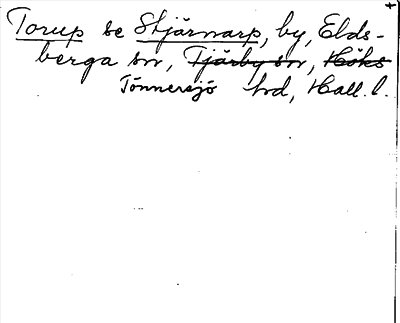 Torup se Stjärnarp, by, Elds-
berga sn, Tjärby sn, Höks
Tönnersjö hd, Hall. l.